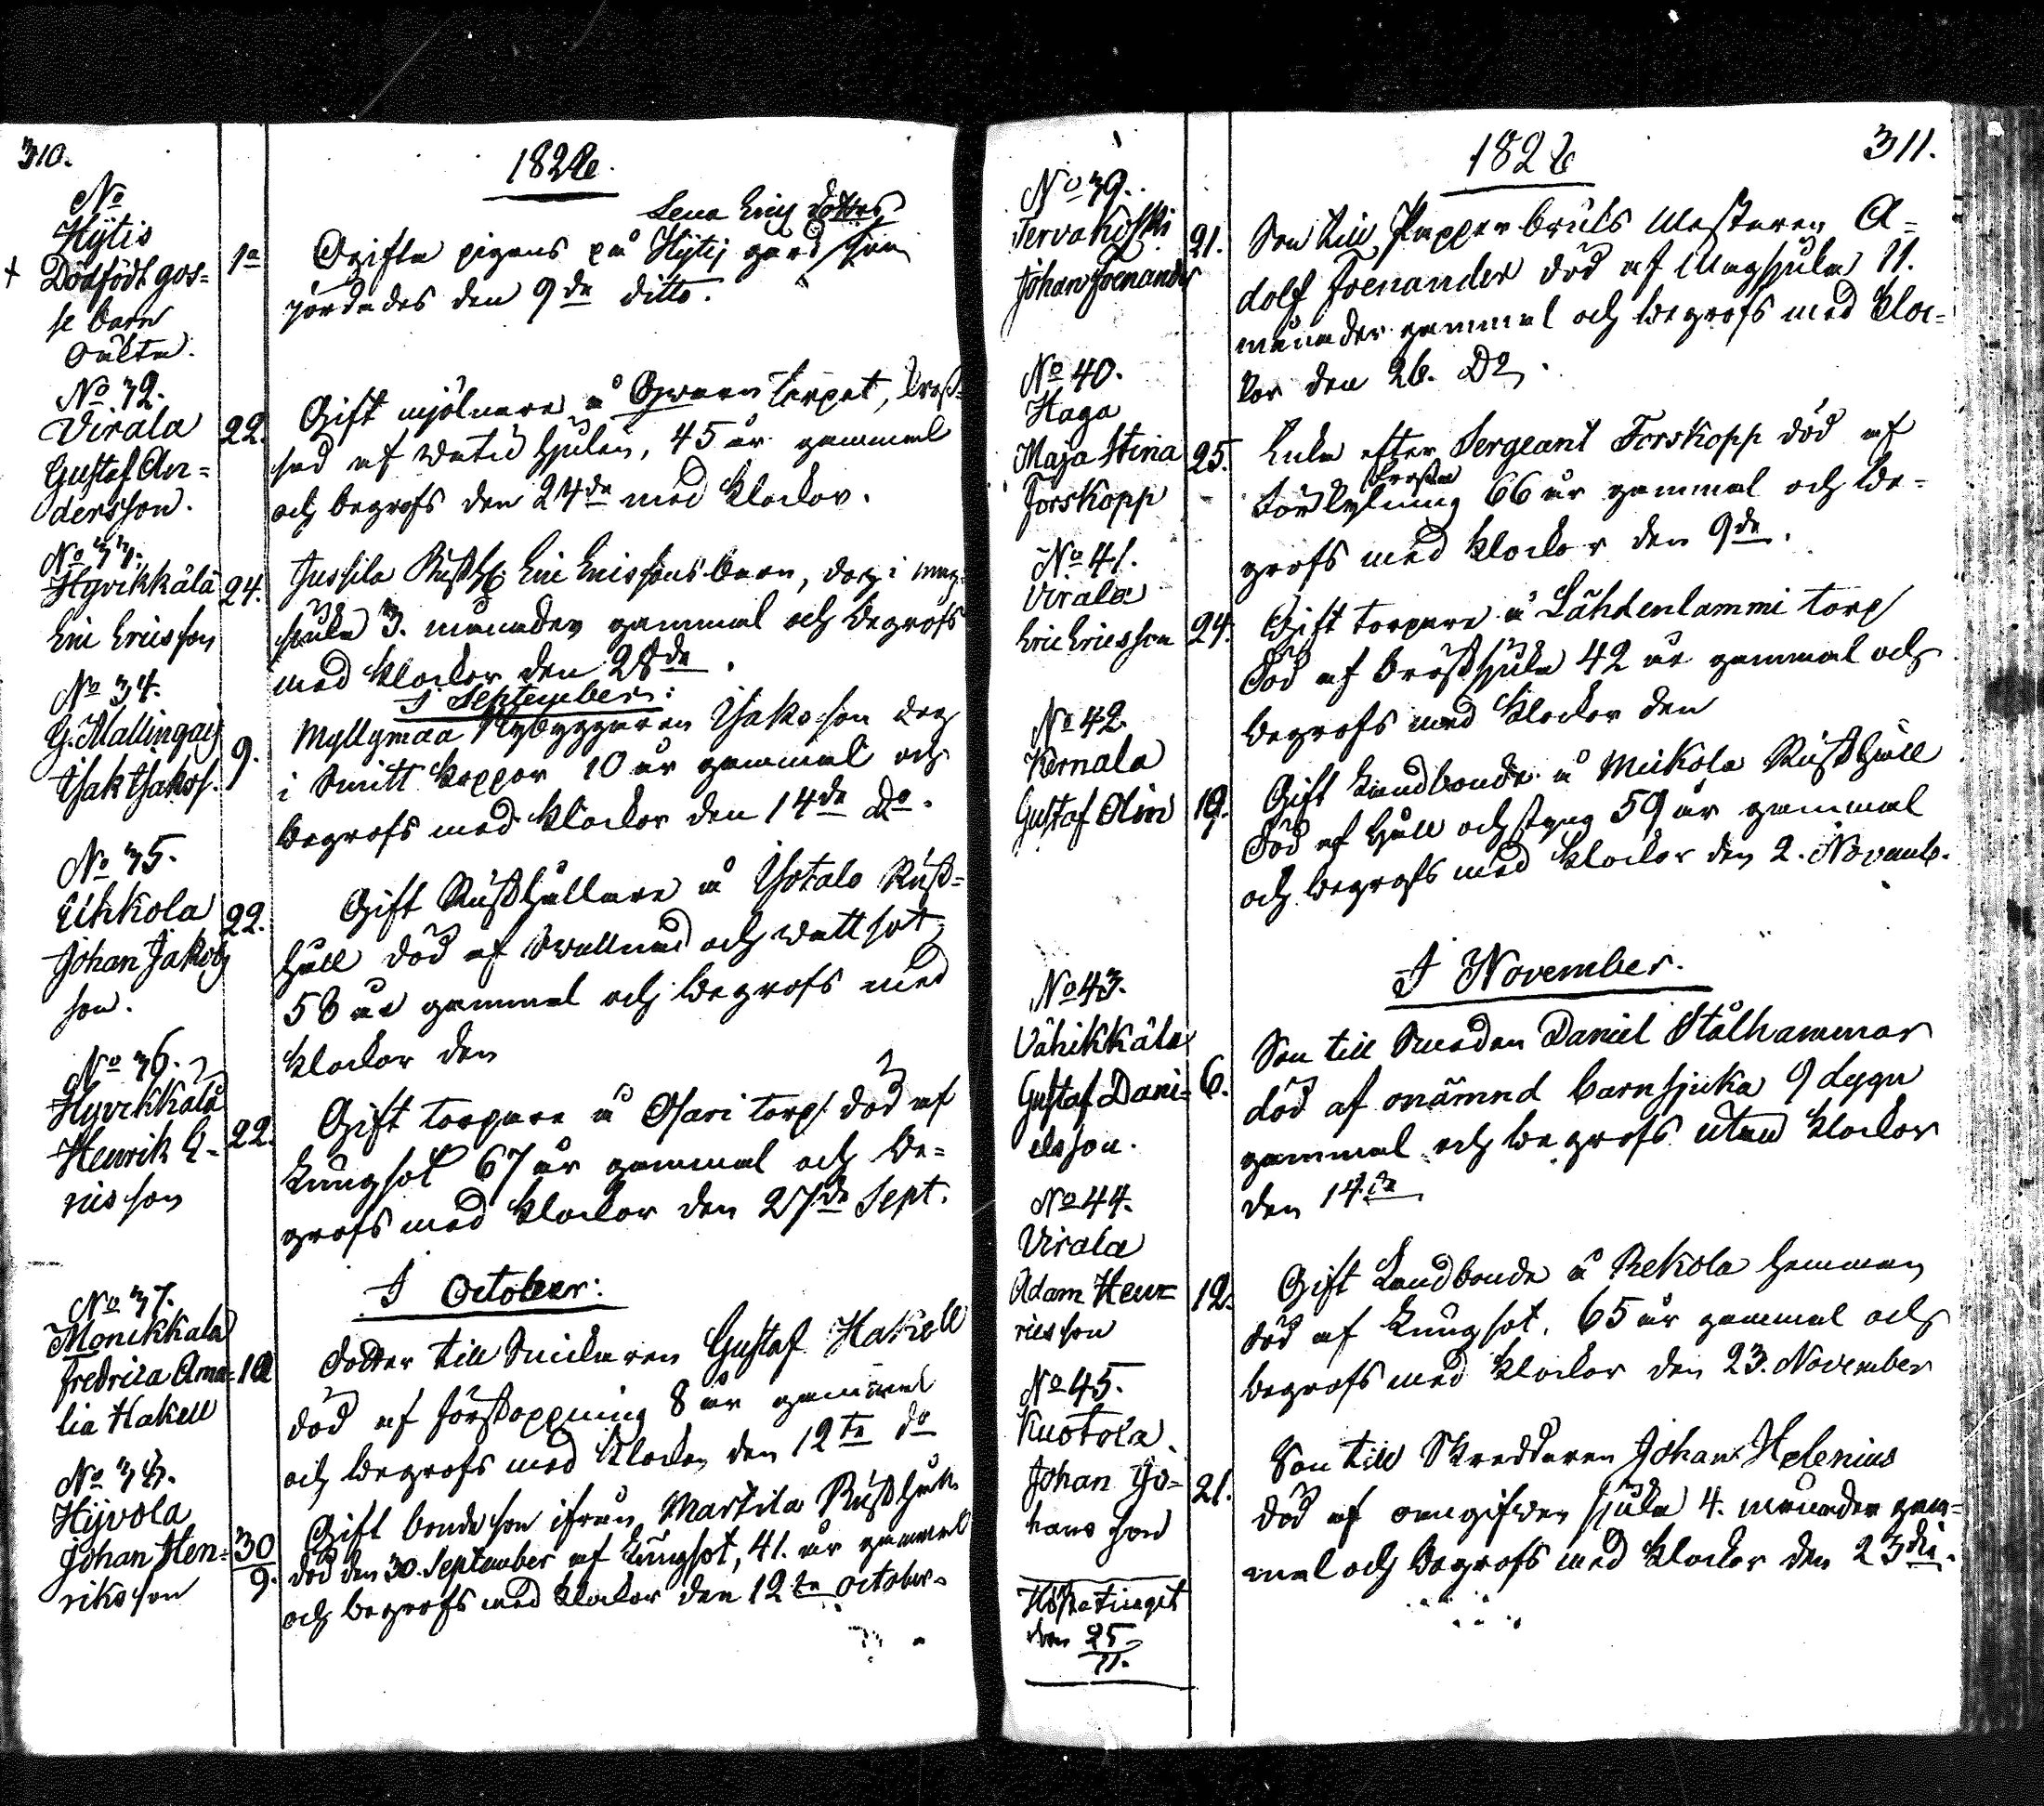 310.
1826.
No
Hÿtis
+ Dödfödt gos=
se barn
oäkta.
1a
Lena Erics dotters
Ogifta pigans på Hÿtis gård som
jordades den 9da ditto.
No 32.
Virala
Gustaf An=
dersson.
22.
Gift mjölnare å torpet, kros=
sad af hjulen, 45 år gammal
och begrofs den 24da med klockor.
No 33.
Hyvikkälä
Eric Ericsson
24.
Jussila Rusth: Eric Ericssons barn, dog i mag=
sjuka 3. månader gammal och begrofs
med klockor den 28da.
I September:
No 34.
G. Mallinga
Isak Isaks.
9.
Myllymaa Nybyggaren Isaksson dog
i Smitt koppor 10 år gammal och
begrofs med klockor den 14da Do.
No 35.
Uhkola
Johan Jakobs
son.
22.
Gift Rusthållare å Isotalo Rust=
håll död af Swullnad och wattsot
58 år gammal och begrofs med
klockor den
No 36.
Hyvikkälä
Henrik E=
ricsson
22.
Gift torpare å Ojari torp död af
Lungsot 67 år gammal och be=
grofs med klockor den 27da Sept.
I October:
No 37.
Monikkala
Fredrica Ama=
lia Hakell
Dotter till Snickaren Gustaf Hakell
död af förstoppning 8 år gammal
och begrofs med klockor den 12te do
No 38.
Hyvola
Johan Hen=
riksson
30
9.
Gift bonde son ifrån Marttila Rusthåll
död den 30. September af Lungsot, 41. år gammal
och begrofs med klockor den 12te october.
1826
311.
No 39.
Tervakoski
Johan Foenander
21.
Son till Pappersbruks Mästaren A=
dolf Foenander död af Magsjuka 11.
månader gammal och begrofs med kloc=
kor den 26. Do.
No 40.
Haga
Maja Stina
Forskopp
25.
Enka efter Sergeant Forskopp död af
förkylning 66 år gammal och be=
grofs med klockor den 9da.
No 41.
Virala
Eric Ericsson
24.
Gift torpare å Lähdenlammi torp
död af bröstsjuka 42 år gammal och
begrofs med klockor den
No 42
Kernala
Gustaf Olin
19.
Gift Landbonde å Mickola Rusthåll
död af håll och styng 59 år gammal
och begrofs med klockor den 2. Novemb.
I November.
No 43.
Vähikkälä
Gustaf Dani=
elsson.
6.
Son till Smeden Daniel Stålhammar
död af onämnd barnsjuka 9 dygn
gammal och begrofs utan klockor
den 14.de
No 44.
Virala
Adam Hen=
ricsson
12.
Gift Landbonde å Rekola hemman
död af Lungsot. 65 år gammal och
begrofs med klockor den 23. November
No 45.
Kuotola.
Johan Jo=
hansson
21.
Son till Skreddaren Johan Helenius
död af oangifven sjuka 4. månader gam=
mal och begrofs med klockor den 23die.
Hösttinget
den 25
11.